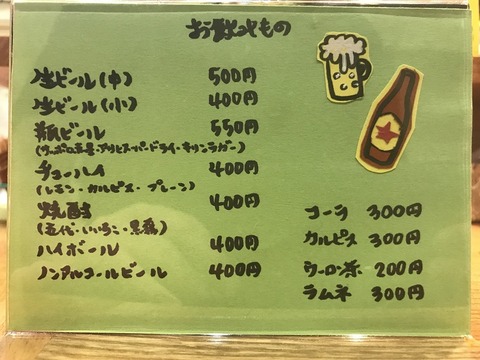 お飲みもの
生ビール(中) 500円
生ビール(小) 400円
瓶ビール 550円
(サッポロ赤星・アサヒスーパードライ・キリンラガー)
チューハイ 400円
(レモン・カルピス・プレーン)
焼酎 400円
(五代・いいちこ・黒霧)
ハイボール 400円
ノンアルコールビール 400円
コーラ 300円
カルピス 300円
ウーロン茶 200円
ラムネ 300円